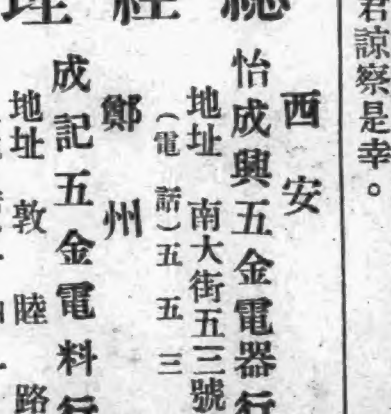 君諒察是幸。
總經理
西安
怡成興五金電器行
地址 南大街五三號
(電話)五五三
鄭州
成記五金電料行
地址 敦睦路